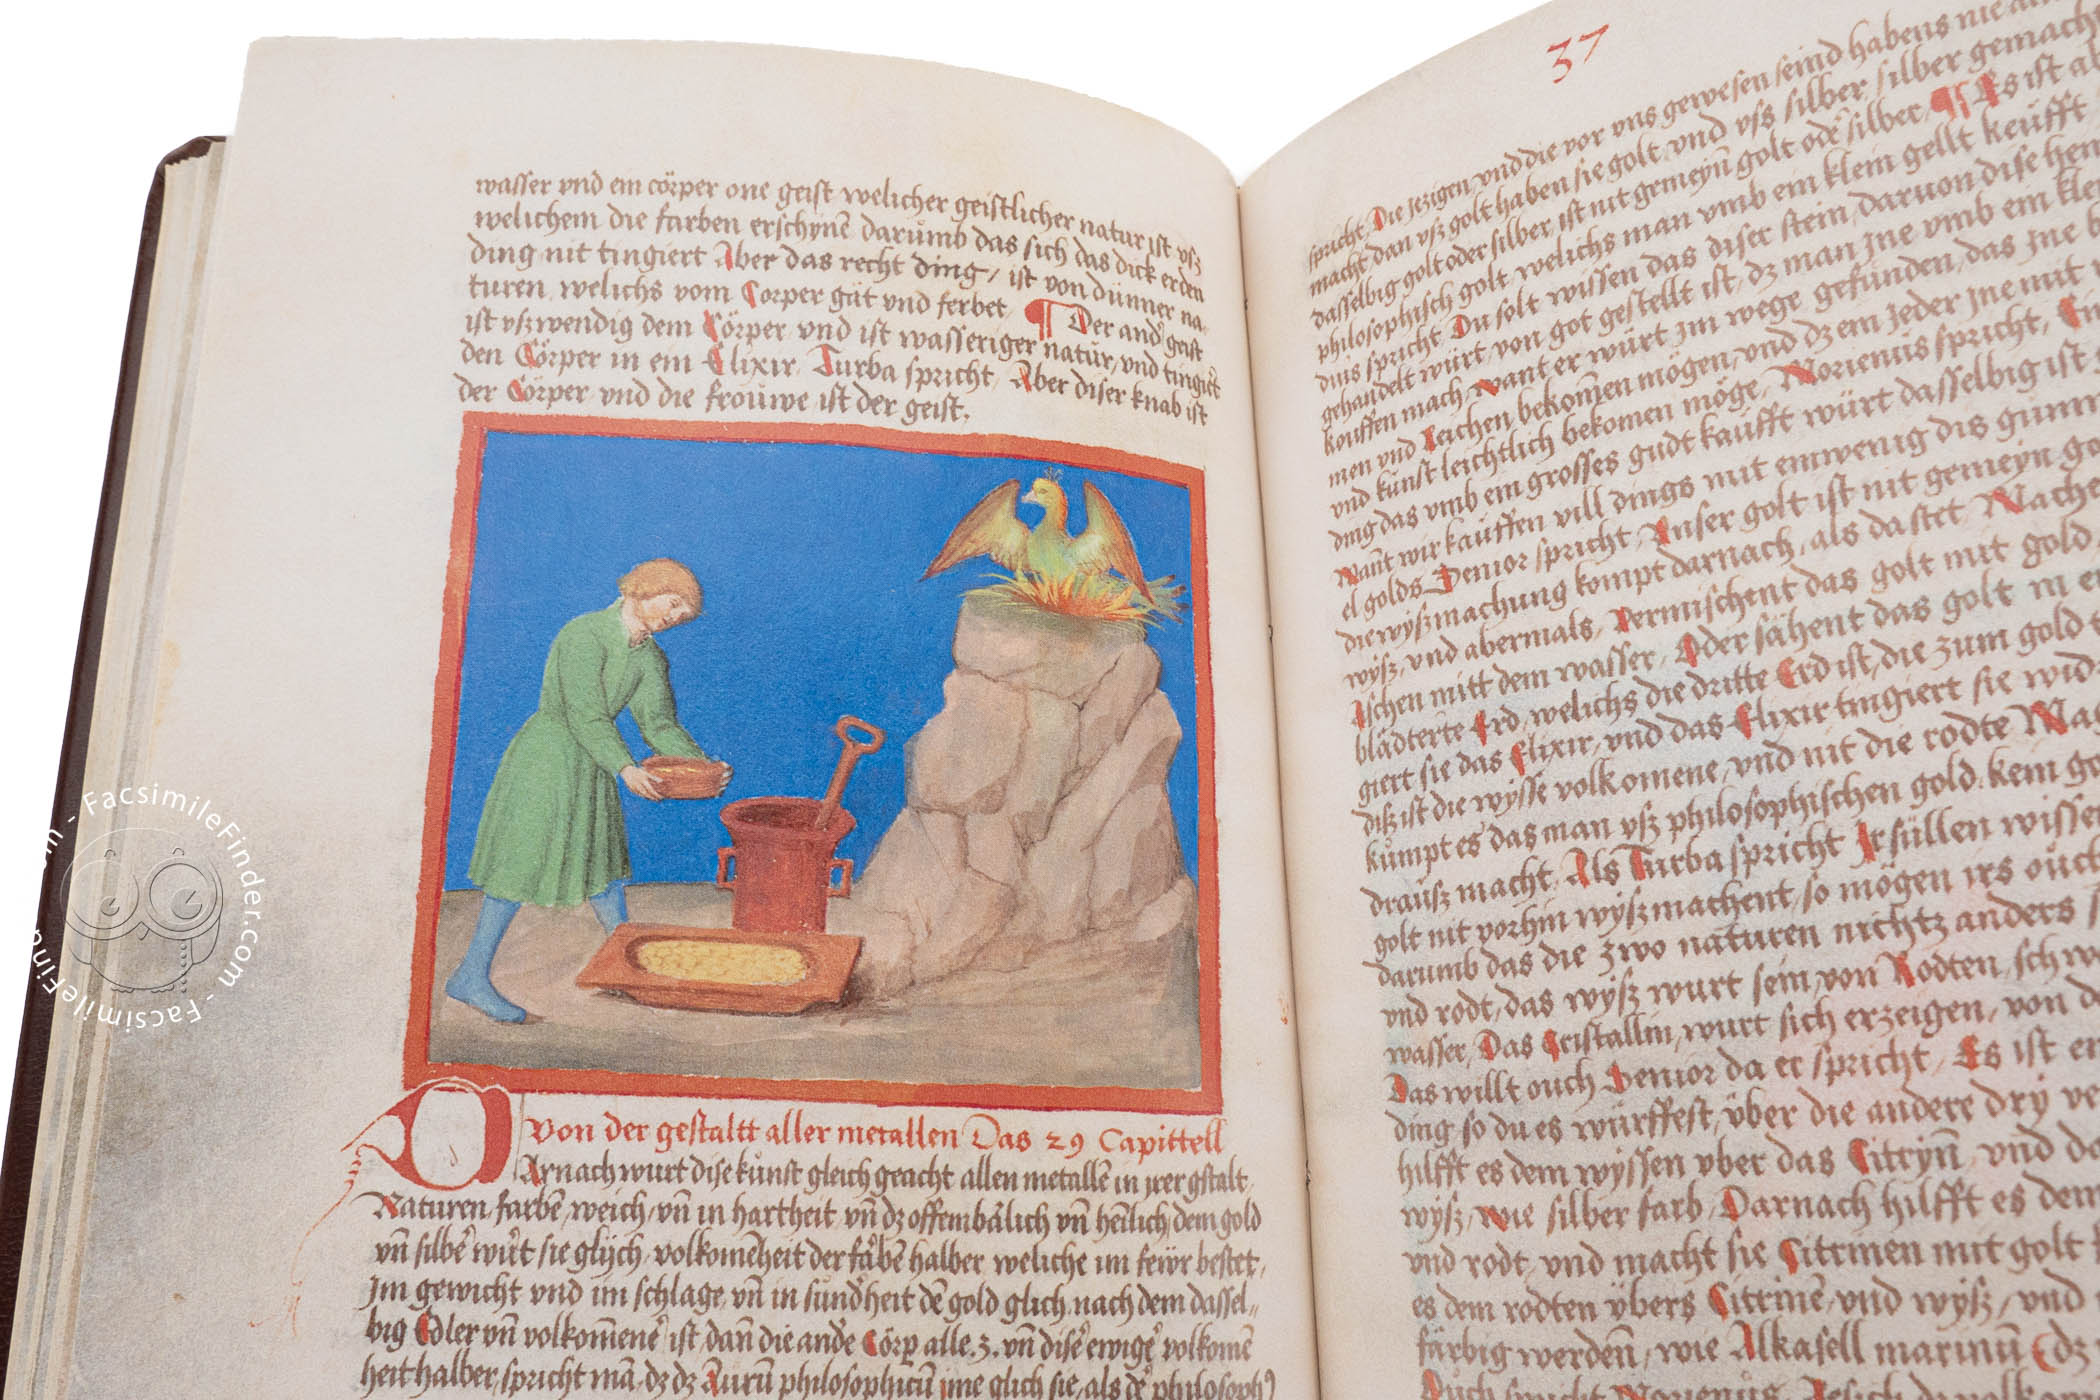 wasser vnd ein cörper one geist welicher geistlicher natur ist vſz
welichem die farben erschynē darumb das sich das dick erden
ding nit tingiert Aber das recht ding / ist von dünner na„
turen welichs vom Corper gat vnd ferbet ¶ Der and' geist
ist vſzwendig dem Cörper vnd ist wasseriger natur, vnd tingirt
den Cörper in ein Elixir Turba spricht, Aber diser knab ist
der Cörper vnd die frouwe ist der geist.
Von der gestaltt aller metallen Das 29 Capittell
DArnach wurt dise kunst gleich geacht allen metallē in irer gstalt,
Naturen, farbē, weich, vn̄ in hartheit vn̄ dz offembälich vn̄ heīlich, dem gold
vn̄ silbē wirt sie glijch, volkomēheit der fäbē halber weliche im feür bestet,
Im gewicht vnd im schlage, vn̄ in sundheit dē gold glich nach dem dassel„
big Edler vn̄ volkomēne' ist, dan̄ die ande Cörp alle. 3. vn̄ dise' ewige' volkomē
heit halber, spricht mā, dz dz Aurū philosophicū ime glich sie, als de' philosoph'
37
spricht, Die Jezigen vnd die vor vns gewesen seind habens nie
macht dan vſz golt haben sie golt vnd vſs silber silber gemach
dasselbig golt oder silber ist nit gemeyn golt ode silber. ¶ Es ist ab
philosophisch golt welichs man vmb ein klein gellt keüfft
dius spricht, Du solt wissen das diser stein, daruon dise hen
gehandelt würt, von got gestellt ist, dz man Jne vmb ein kle
kouffen mach, want er würt im wege gefunden, das Jne
men vnd Reichen bekomen mögen, vnd dz em jeder Jne mit
vnd kunst leichtlich bekomen möge, Morienus spricht,
ding das vmb ein grosses gudt kaufft würt dasselbig ist
Want wir kauffen vill dings mit einwenig dis gumm
el golds Senior spricht, Vnser golt ist nit gemeyn go
die wyſzmachung kompt darnach, als da stet, Mach
wyſz, vnd abermals, Vermischent das golt mit gold,
Ischen mitt dem wasser, Oder sähent das golt in
blädterte Erd, welichs die dritte Erd ist, die zum gold
giert sie das Elixir, vnd das Elixir tingiert sie wid
diſz ist die wysse volkomene, vnd nit die rodte Ma
kumpt es das man vſz philosophischen gold kein go
drauſz macht, Als Turba spricht Ir süllen wisse
golt nit vorhin wyſz machent, so mögen irs ouch
darumb das die zwo naturen nichtz anders
vnd rodt, das wyſz wurt sein, von Rodten, sch w
wasser, Das Cristallin, wurt sich erzeigen, von
Das willt ouch Senior da er spricht, Es ist
ding so du es würffest, über die andere dry
hilfft es dem wyssen vber das Citryn, vnd
wyſz, wie silber farb, Darnach hilfft es dem
vnd rodt, vnd macht sie Citrinen mit golt
es dem rodten ybers Citrinē, vnd wyſz, vnd
färbig werden, wie Alkasell marinū
FacsimileFinder.com - FacsimileFinder.com